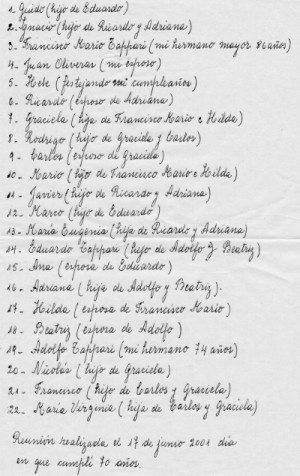 1. Guido (hijo de Eduardo)
2. Ignacio (hijo de Ricardo y Adriana)
3. Francisco Mario Tappari (mi hermano mayor 81 años)
4. Juan Oliveras (mi esposo)
5. Hebe (festejando mi cumpleaños)
6. Ricardo (esposo de Adriana)
7. Graciela (hija de Francisco Mario e Hilda)
8. Rodrigo (hijo de Graciela y Carlos)
9- Carlos (esposo de Graciela)
10. Mario (hijo de Francisco Mario e Hilda)
11. Javier (hijo de Ricardo y Adriana)
12- Marco (hijo de Eduardo)
13- Maria Eugenia (hija de Ricardo y Adriana)
14. Eduardo Tappari (hijo de Adolfo y Beatriz)
15- Ana (esposa de Eduardo)
16- Adriana (hija de Adolfo y Beatriz).
17- Hilda (esposa de Francisco Mario)
18- Beatriz (esposa de Adolfo)
19- Adolfo Tappari (mi hermano 74 años)
20- Nicolás (hijo de Graciela)
21- Francisco (hijo de Carlos y Graciela)
22- Maria Virginia (hija de Carlos y Graciela)
Reunión realizada el 17 de junio 2001 día
en que cumplí 70 años.